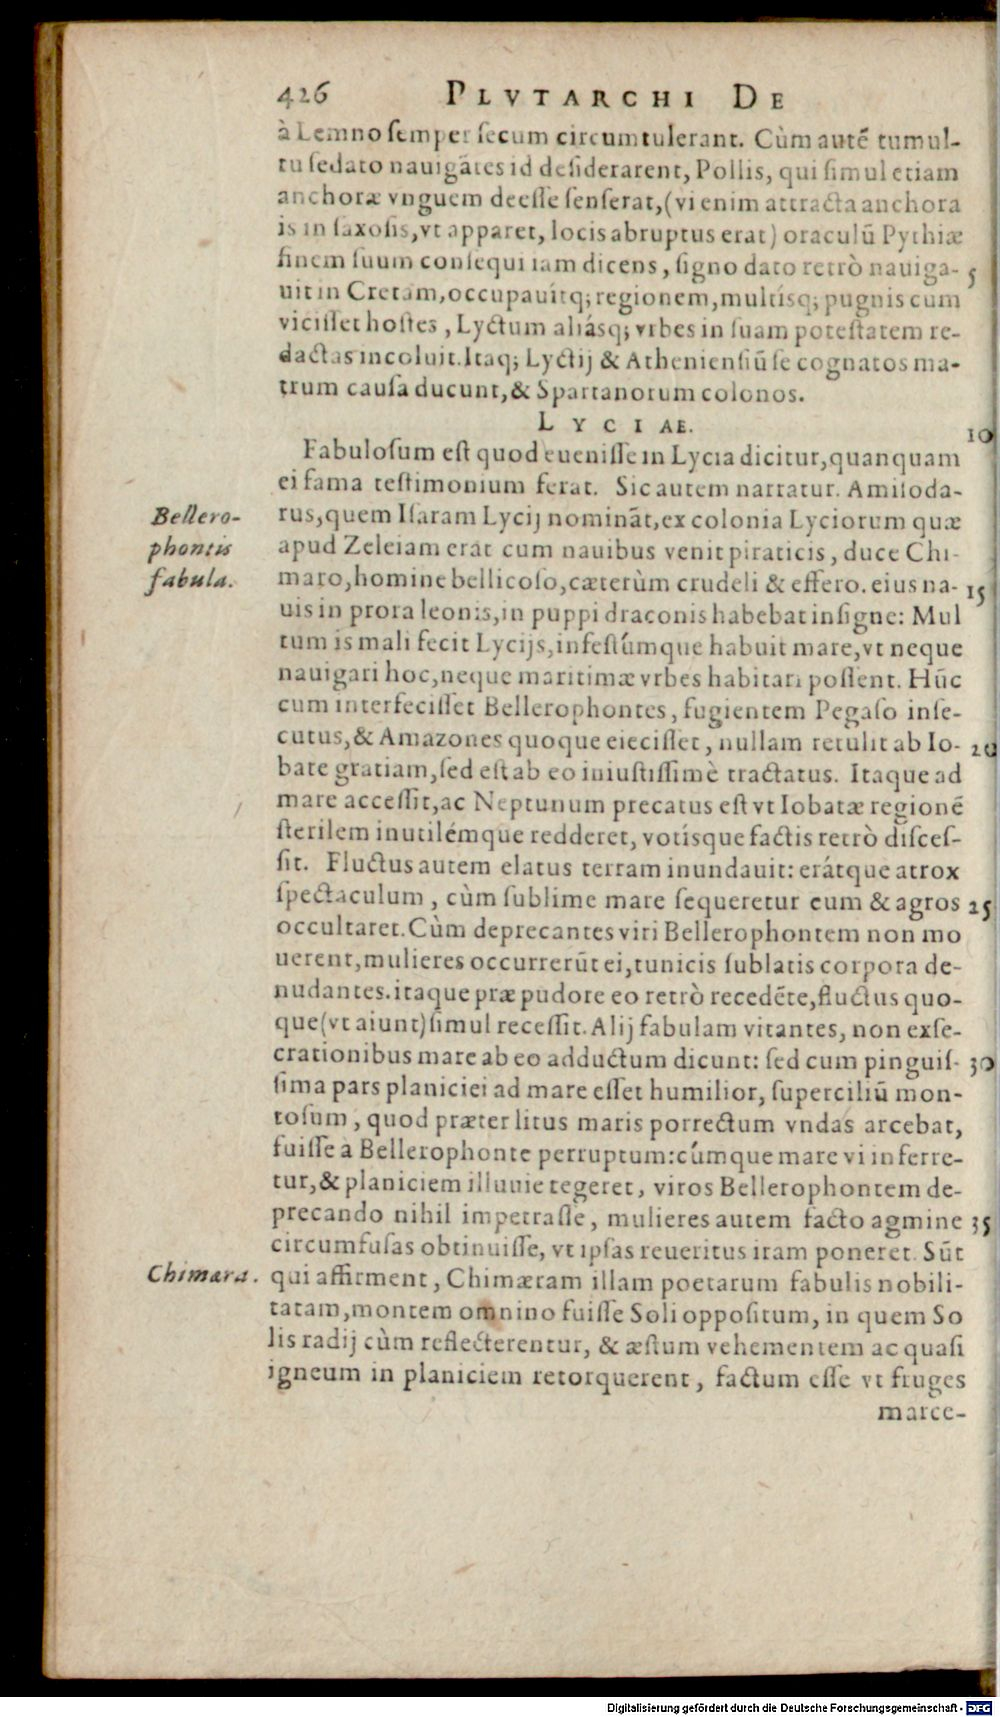 426 PLVTARCHI DE
à Lemno semper secum circumtulerant. Cùm autẽ tumul-
tu sedato nauigãtes id desiderarent, Pollis, qui simul etiam
anchoræ vnguem deesse senserat, (vi enim attracta anchora
is in saxosis, vt apparet, locis abruptus erat) oraculũ Pythiæ
finem suum consequi iam dicens, signo dato retrò nauiga- 5
uit in Cretam, occupauítq; regionem, multísq; pugnis cum
vicisset hostes, Lyctum aliásq; vrbes in suam potestatem re-
dactas incoluit. Itaq; Lyctij & Atheniensiũ se cognatos ma-
trum causa ducunt, & Spartanorum colonos.
LYCIAE. 10
Fabulosum est quod euenisse in Lycia dicitur, quanquam
ei fama testimonium ferat. Sic autem narratur. Amisoda-
Bellero- rus, quem Isaram Lycij nominãt, ex colonia Lyciorum quæ
phontis apud Zeleiam erat cum nauibus venit piraticis, duce Chi-
fabula. maro, homine bellicoso, cæterùm crudeli & effero. eius na- 15
uis in prora leonis, in puppi draconis habebat insigne: Mul
tum is mali fecit Lycijs, infestúmque habuit mare, vt neque
nauigari hoc, neque maritimæ vrbes habitari possent. Hũc
cum interfecisset Bellerophontes, fugientem Pegaso inse-
cutus, & Amazones quoque eiecisset, nullam retulit ab Io- 20
bate gratiam, sed est ab eo iniustissimè tractatus. Itaque ad
mare accessit, ac Neptunum precatus est vt Iobatæ regionẽ
sterilem inutilémque redderet, votísque factis retrò disces-
sit. Fluctus autem elatus terram inundauit: erátque atrox
spectaculum, cùm sublime mare sequeretur eum & agros 25
occultaret. Cùm deprecantes viri Bellerophontem non mo
uerent, mulieres occurrerũt ei, tunicis sublatis corpora de-
nudantes. itaque præ pudore eo retrò recedẽte, fluctus quo-
que (vt aiunt) simul recessit. Alij fabulam vitantes, non exse-
crationibus mare ab eo adductum dicunt: sed cum pinguis- 30
sima pars planiciei ad mare esset humilior, superciliũ mon-
tosum, quod præter litus maris porrectum vndas arcebat,
fuisse à Bellerophonte perruptum: cúmque mare vi inferre-
tur, & planiciem illuuie tegeret, viros Bellerophontem de-
precando nihil impetrasse, mulieres autem facto agmine 35
circumfusas obtinuisse, vt ipsas reueritus iram poneret. Sũt
Chimæra. qui affirment, Chimæram illam poetarum fabulis nobili-
tatam, montem omnino fuisse Soli oppositum, in quem So
lis radij cùm reflecterentur, & æstum vehementem ac quasi
igneum in planiciem retorquerent, factum esse vt fruges
marce-
Digitalisierung gefördert durch die Deutsche Forschungsgemeinschaft - DFG